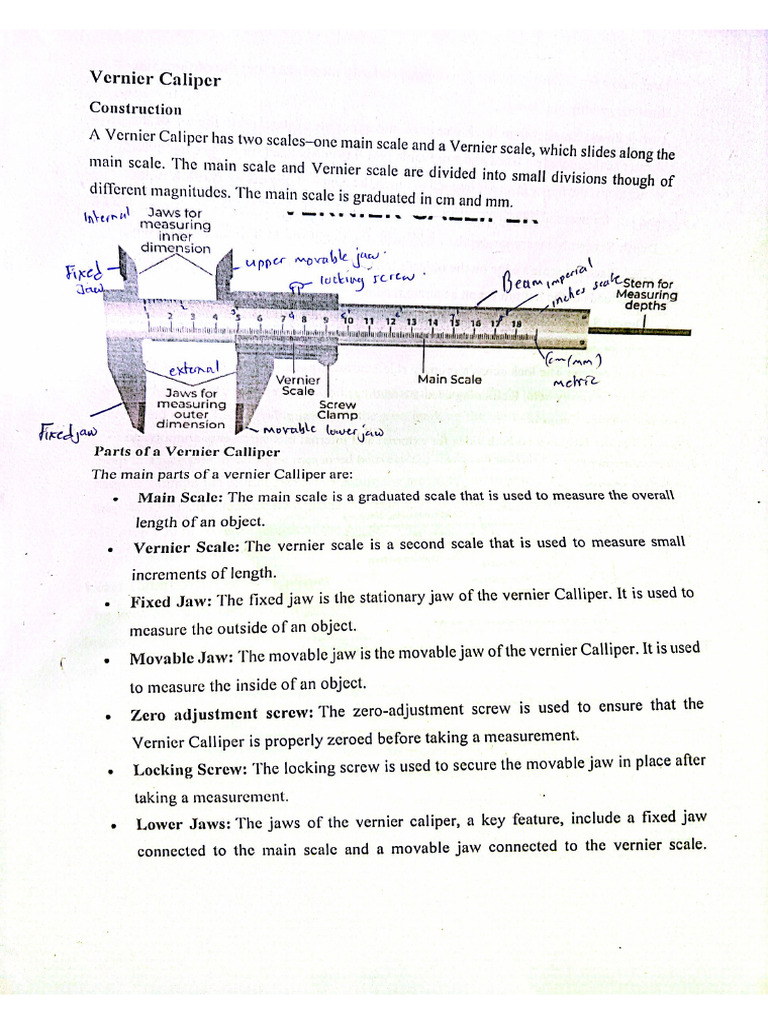 Vernier Caliper
Construction
A Vernier Caliper has two scales–one main scale and a Vernier scale, which slides along the
main scale. The main scale and Vernier scale are divided into small divisions though of
different magnitudes. The main scale is graduated in cm and mm.
Internal
Jaws for
measuring
inner
dimension
Fixed
Jaw
upper movable jaw
locking screw
Beam imperial
inches scale
Stem for
Measuring
depths
1 2 3 4 5 6 7 8 9 10 11 12 13 14 15 16 17 18
external
Jaws for
measuring
outer
dimension
Vernier
Scale
Screw
Clamp
Main Scale
(cm/mm)
metric
Fixed jaw
movable lower jaw
Parts of a Vernier Calliper
The main parts of a vernier Calliper are:
• Main Scale: The main scale is a graduated scale that is used to measure the overall
length of an object.
• Vernier Scale: The vernier scale is a second scale that is used to measure small
increments of length.
• Fixed Jaw: The fixed jaw is the stationary jaw of the vernier Calliper. It is used to
measure the outside of an object.
• Movable Jaw: The movable jaw is the movable jaw of the vernier Calliper. It is used
to measure the inside of an object.
• Zero adjustment screw: The zero-adjustment screw is used to ensure that the
Vernier Calliper is properly zeroed before taking a measurement.
• Locking Screw: The locking screw is used to secure the movable jaw in place after
taking a measurement.
• Lower Jaws: The jaws of the vernier caliper, a key feature, include a fixed jaw
connected to the main scale and a movable jaw connected to the vernier scale.